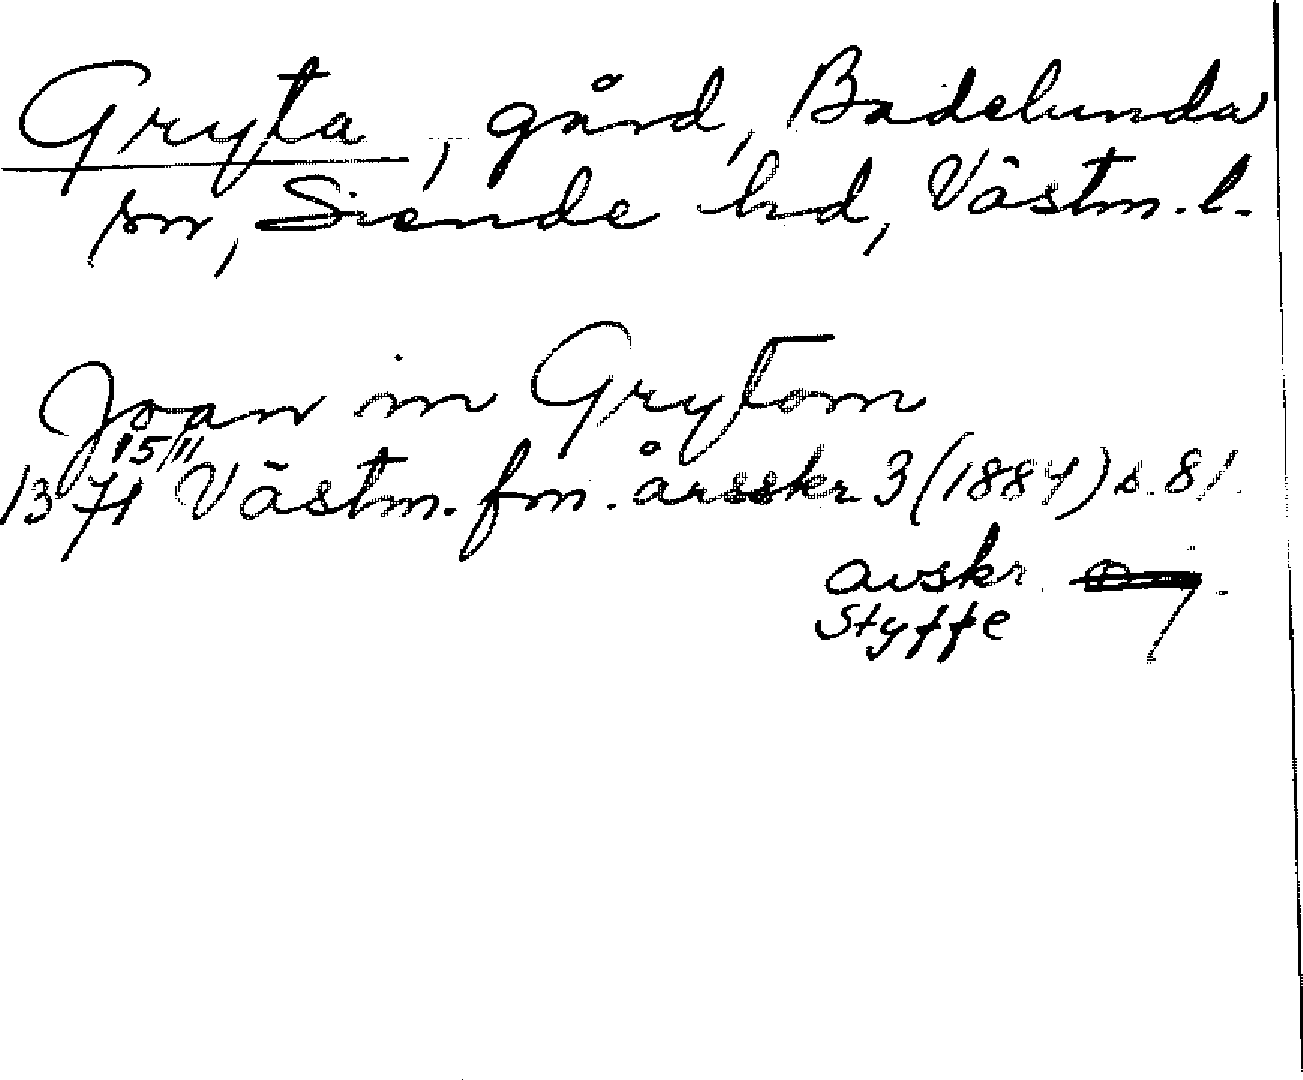 Gryta, gård, Badelunda
sn, Siende hd, Västm. l.
Joan in Grytom
15/11
1371 Västm. fm. årsskr 3 (1884) s. 81.
avskr.
Styffe